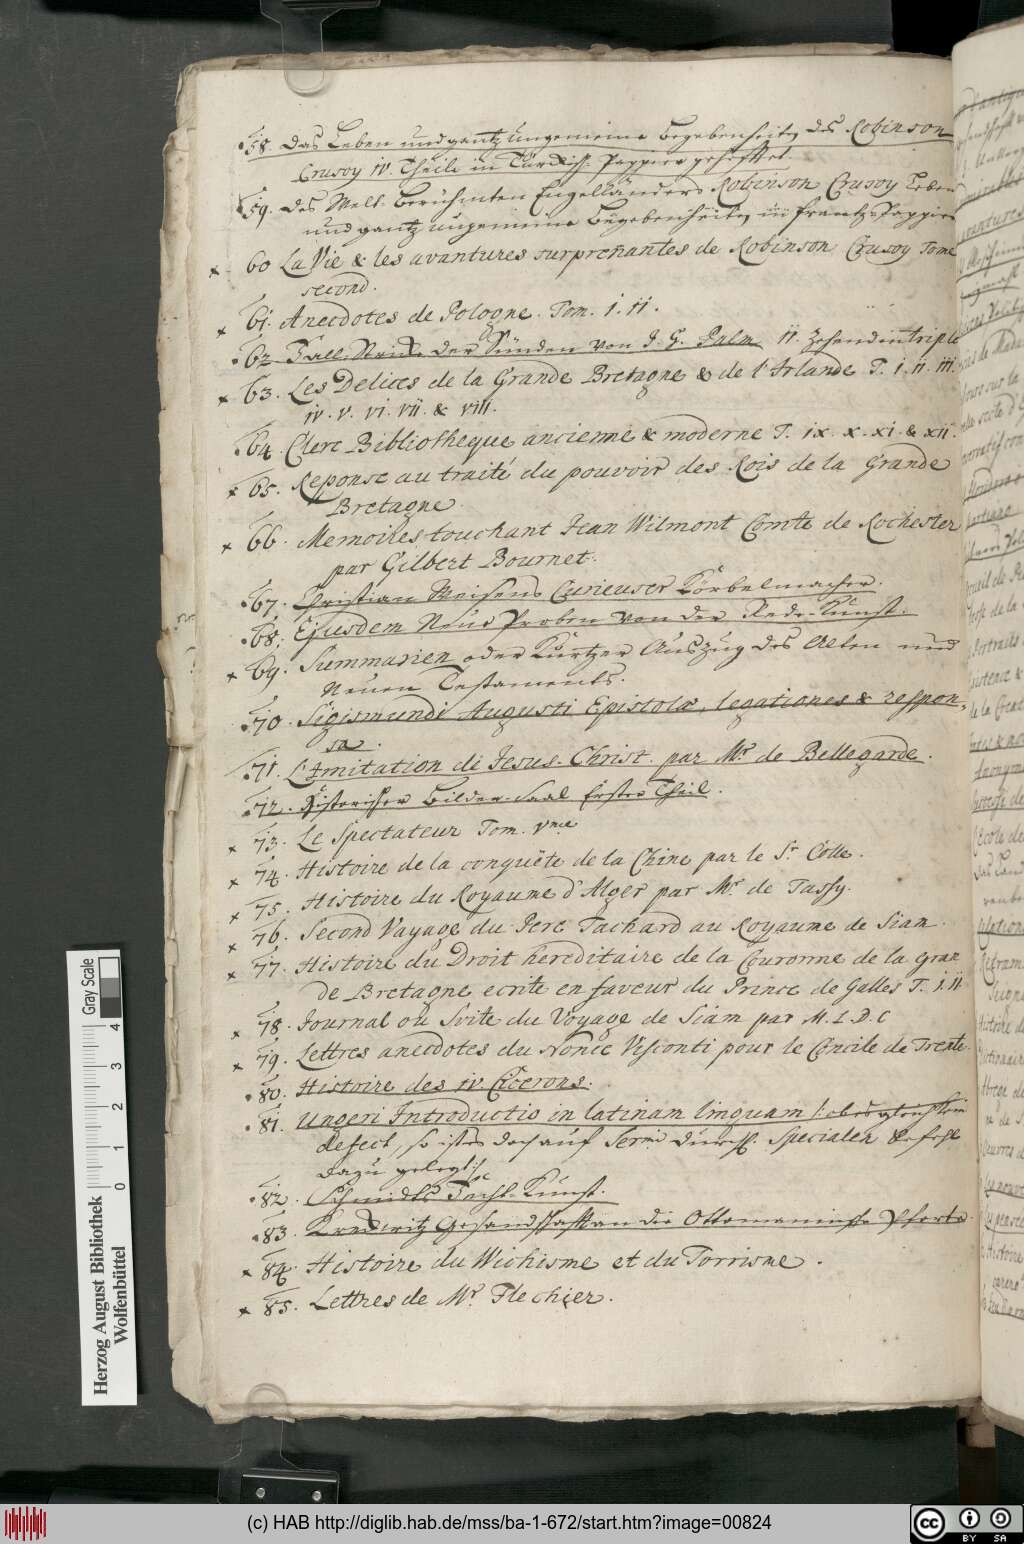 58. Das Leben und gantz ungemeine Begebenheiten des Robinson
Crusoy IV. Theile in Türckisch Pappier gehefftet.
59. des Welt-Berühmten Engelländers Robinson Crusoy Leben
und gantz ungemeine Begebenheiten in frantz. Pappier
× 60 La Vie & les avantures surprenantes de Robinson Crusoy Tome
second.
× 61. Anecdotes de Pologne. Tom. I. II.
62 Fall-Stricke der Sünden von J. G. Palm II.
× 63. Les Delices de la Grande Bretagne & de l'Irlande T. I. II. III.
IV. V. VI. VII. & VIII.
64. Clerc Bibliotheque ancienne & moderne T. IX. X. XI. & XII.
× 65. Reponse au traité du pouvoir des Rois de la Grande
Bretagne.
× 66. Memoires touchant Jean Wilmont Comte de Rochester
par Gilbert Bournet.
67. Christian Weisens Curieuser Körbelmacher.
68. Ejusdem Neue Proben von der Rede-Kunst.
× 69. Summarien oder Kurtzer Auszug des Alten und
Neuen Testaments.
70. Sigismundi Augusti Epistolæ, legationes & respon-
sa.
71. L'Imitation de Jesus-Christ par Mr. de Bellegarde.
72. Historischer Bilder-Saal Erster Theil.
× 73. Le Spectateur Tom. Vme
× 74. Histoire de la conquête de la Chine par le Sr. Colle.
× 75. Histoire du Royaume d'Alger par Mr. de Tassy.
× 76. Second Vayage du Pere Tachard au Royaume de Siam.
× 77. Histoire du Droit hereditaire de la Couronne de la gran
de Bretagne ecrite en faveur du Prince de Galles T. I. II.
× 78. Journal ou Suite du Voyage de Siam par M. L. D. C
× 79. Lettres anecdotes du Nonce Visconti pour le Concile de Trente.
80. Histoire des IV. Cicerons.
81. Ungeri Introductio in latinam linguam /: ob es gleich kein
defect, so ist es doch auf Sermi Durchl. Specialen Befehl
dazu gelegt :/
82. Schmidts Fecht-Kunst.
83. Gesandschafft an die Ottomanische Pforte.
× 84. Histoire du Wichisme et du Torrisme.
× 85. Lettres de Mr. Flechier.
Herzog August Bibliothek
Wolfenbüttel
0 1 2 3 4
Gray Scale
(c) HAB http://diglib.hab.de/mss/ba-1-672/start.htm?image=00824
cc BY SA